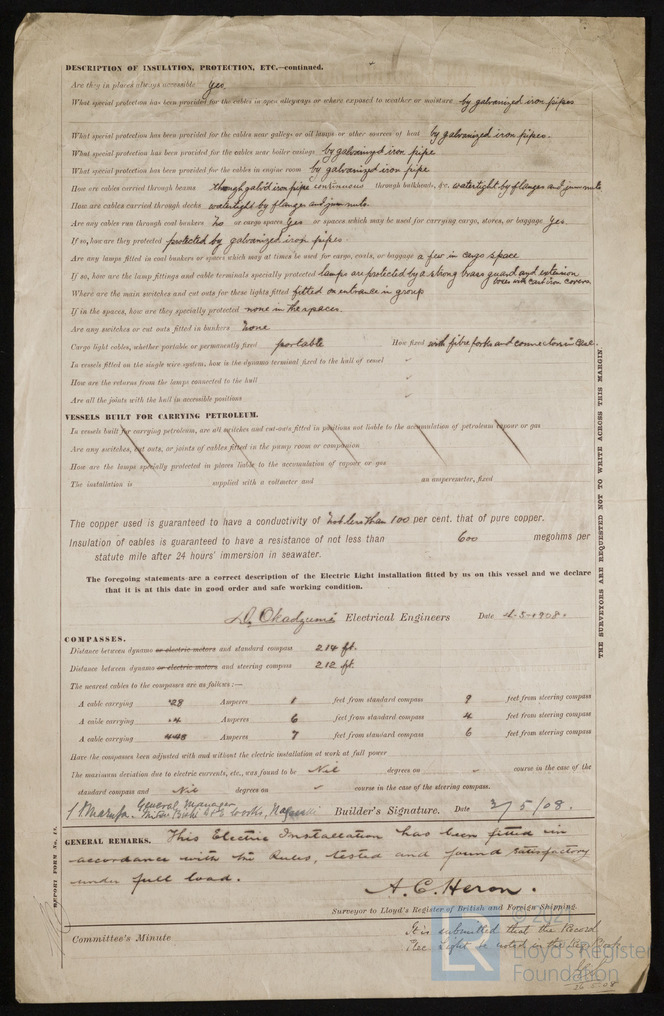 DESCRIPTION OF INSULATION, PROTECTION, ETC.—continued.
Are they in places always accessible yes
What special protection has been provided for the cables in open alleyways or where exposed to weather or moisture by galvanized iron pipes
What special protection has been provided for the cables near galleys or oil lamps or other sources of heat by galvanized iron pipes.
What special protection has been provided for the cables near boiler casings by galvanized iron pipe
What special protection has been provided for the cables in engine room by galvanized iron pipe
How are cables carried through beams through galv'd iron pipe continuous through bulkheads, &c. watertight by flanges and jam nuts
How are cables carried through decks watertight by flanges and jam nuts
Are any cables run through coal bunkers No or cargo spaces Yes or spaces which may be used for carrying cargo, stores, or baggage Yes
If so, how are they protected protected by galvanized iron pipes
Are any lamps fitted in coal bunkers or spaces which may at times be used for cargo, coals, or baggage a few in cargo space
If so, how are the lamp fittings and cable terminals specially protected lamps are protected by a strong brass guard and extension
boxes with cast iron covers.
Where are the main switches and cut outs for these lights fitted fitted on entrance in group
If in the spaces, how are they specially protected none in the spaces.
Are any switches or cut outs fitted in bunkers none
Cargo light cables, whether portable or permanently fixed portable How fixed with fibre forks and connectors in case.
In vessels fitted on the single wire system, how is the dynamo terminal fixed to the hull of vessel
How are the returns from the lamps connected to the hull
Are all the joints with the hull in accessible positions
VESSELS BUILT FOR CARRYING PETROLEUM.
In vessels built for carrying petroleum, are all switches and cut-outs fitted in positions not liable to the accumulation of petroleum vapour or gas
Are any switches, cut outs, or joints of cables fitted in the pump room or companion
How are the lamps specially protected in places liable to the accumulation of vapour or gas
The installation is supplied with a voltmeter and an amperemeter, fixed
The copper used is guaranteed to have a conductivity of not less than 100 per cent. that of pure copper.
Insulation of cables is guaranteed to have a resistance of not less than 600 megohms per
statute mile after 24 hours' immersion in seawater.
The foregoing statements are a correct description of the Electric Light installation fitted by us on this vessel and we declare
that it is at this date in good order and safe working condition.
Okadzumi Electrical Engineers Date 2-5-1908.
COMPASSES.
Distance between dynamo or electric motors and standard compass 214 ft.
Distance between dynamo or electric motors and steering compass 212 ft.
The nearest cables to the compasses are as follows:—
A cable carrying .28 Amperes 1 feet from standard compass 9 feet from steering compass
A cable carrying .4 Amperes 6 feet from standard compass 4 feet from steering compass
A cable carrying 4.48 Amperes 7 feet from standard compass 6 feet from steering compass
Have the compasses been adjusted with and without the electric installation at work at full power
The maximum deviation due to electric currents, etc., was found to be Nil degrees on course in the case of the
standard compass and Nil degrees on course in the case of the steering compass.
General Manager
Works, Builder's Signature. Date 2/5/08.
GENERAL REMARKS. This Electric Installation has been fitted in
accordance with the Rules, tested and found satisfactory
under full load.
A. C. Heron.
Surveyor to Lloyd's Register of British and Foreign Shipping.
Committee's Minute
It is submitted that the Record
Elec. Light be noted in the Reg. Book
26.5.08
THE SURVEYORS ARE REQUESTED NOT TO WRITE ACROSS THIS MARGIN
REPORT FORM No. 11.
LR
© 2021
Lloyd's Register
Foundation